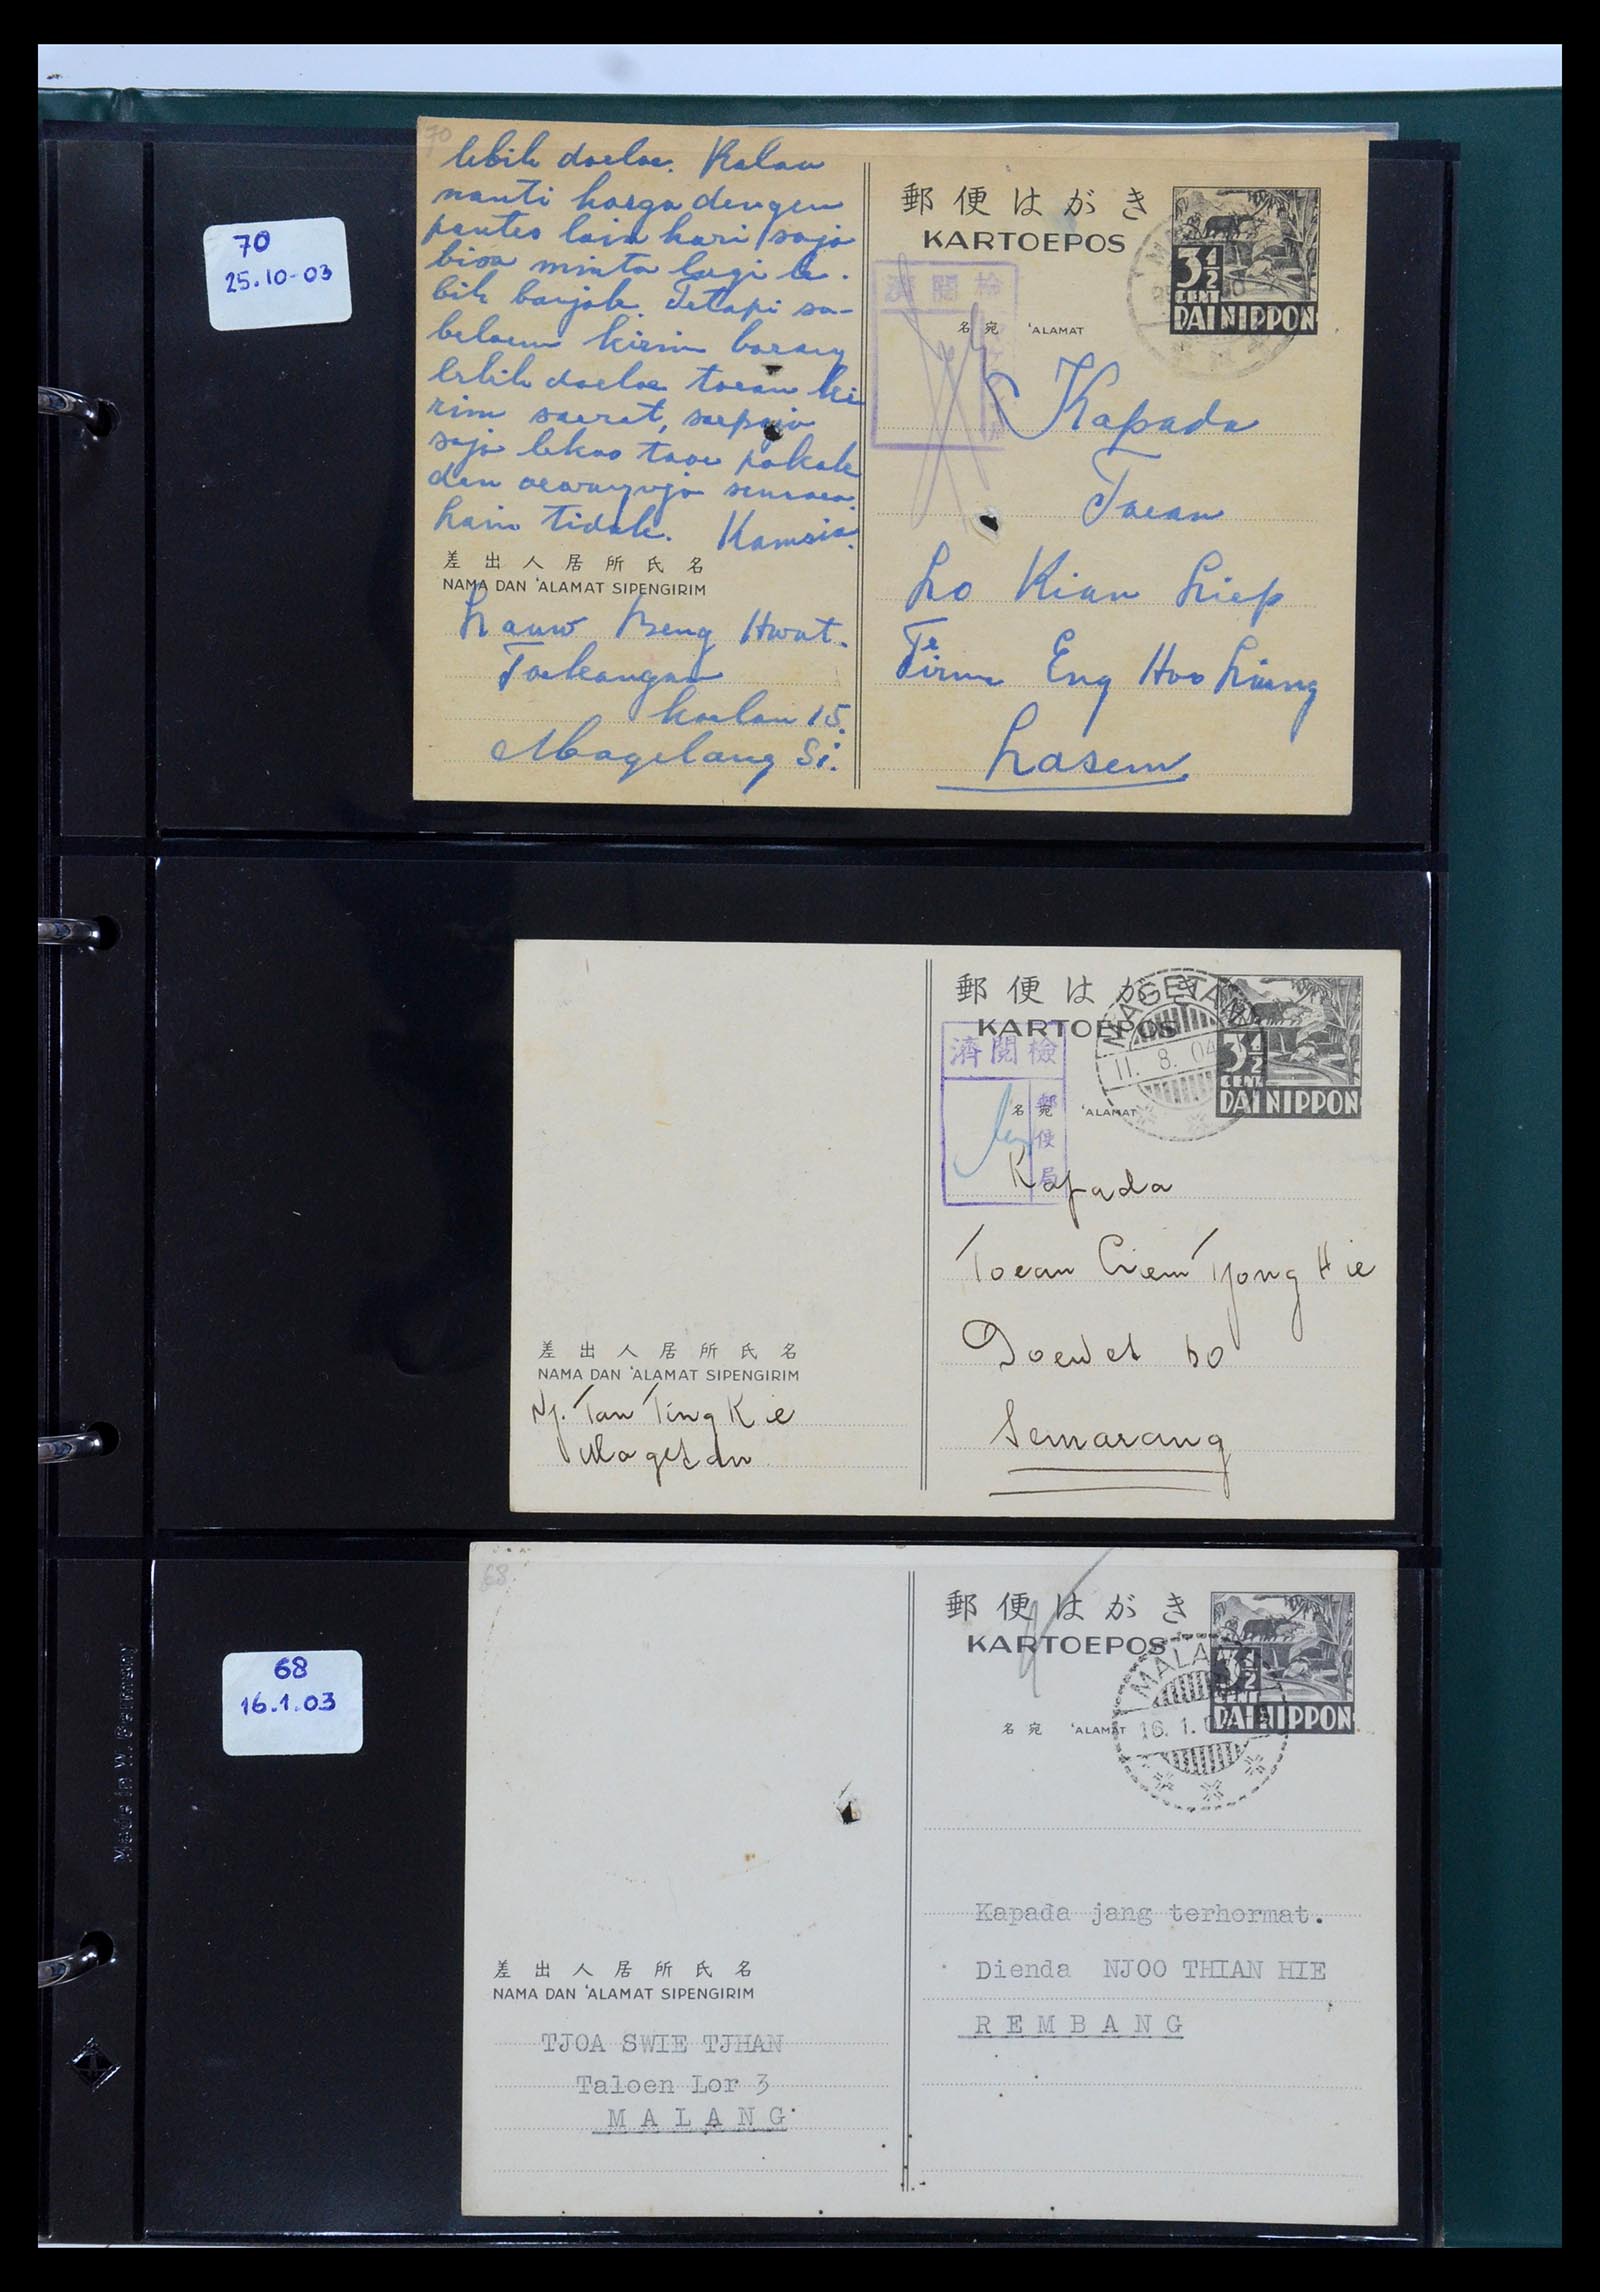 70
25.10-03
70
lebih daeloe. Kalau
nanti harga dengen
pantes lain hari saja
bisa minta lagi le-
bih banjak. Tetapi sa-
beloem kirim barang
lebih doeloe toean ki
rim soerat, soepaja
saja lekas taoe pakah
den oewangnja
tidak. Kamsia.
差出人居所氏名
NAMA DAN 'ALAMAT SIPENGIRIM
Lauw Beng Hwat.
Toekangan
Koelon 15.
Magelang Si.
郵便はがき
KARTOEPOS
3½
CENT
DAI NIPPON
済閲検
名宛 'ALAMAT
Kapada
Toean
Lo Kian Liep
Firma Eng Hoo Liang
Lasem
郵便はがき
KARTOEPOS
MAGETAN
11. 8. 04
3½
CENT
DAI NIPPON
濟閲檢
郵便局
名宛 'ALAMAT
Kapada
Toean Liem Tjong Hie
Doewet 60
Semarang
差出人居所氏名
NAMA DAN 'ALAMAT SIPENGIRIM
Nj. Tan Ting Kie
Magetan
68
16.1.03
68
郵便はがき
KARTOEPOS
MALANG
16. 1.
3½
CENT
DAI NIPPON
名宛 'ALAMAT
Kapada jang terhormat.
Dienda NJOO THIAN HIE
REMBANG
差出人居所氏名
NAMA DAN 'ALAMAT SIPENGIRIM
TJOA SWIE TJHAN
Taloen Lor 3
MALANG
Made in W. Germany